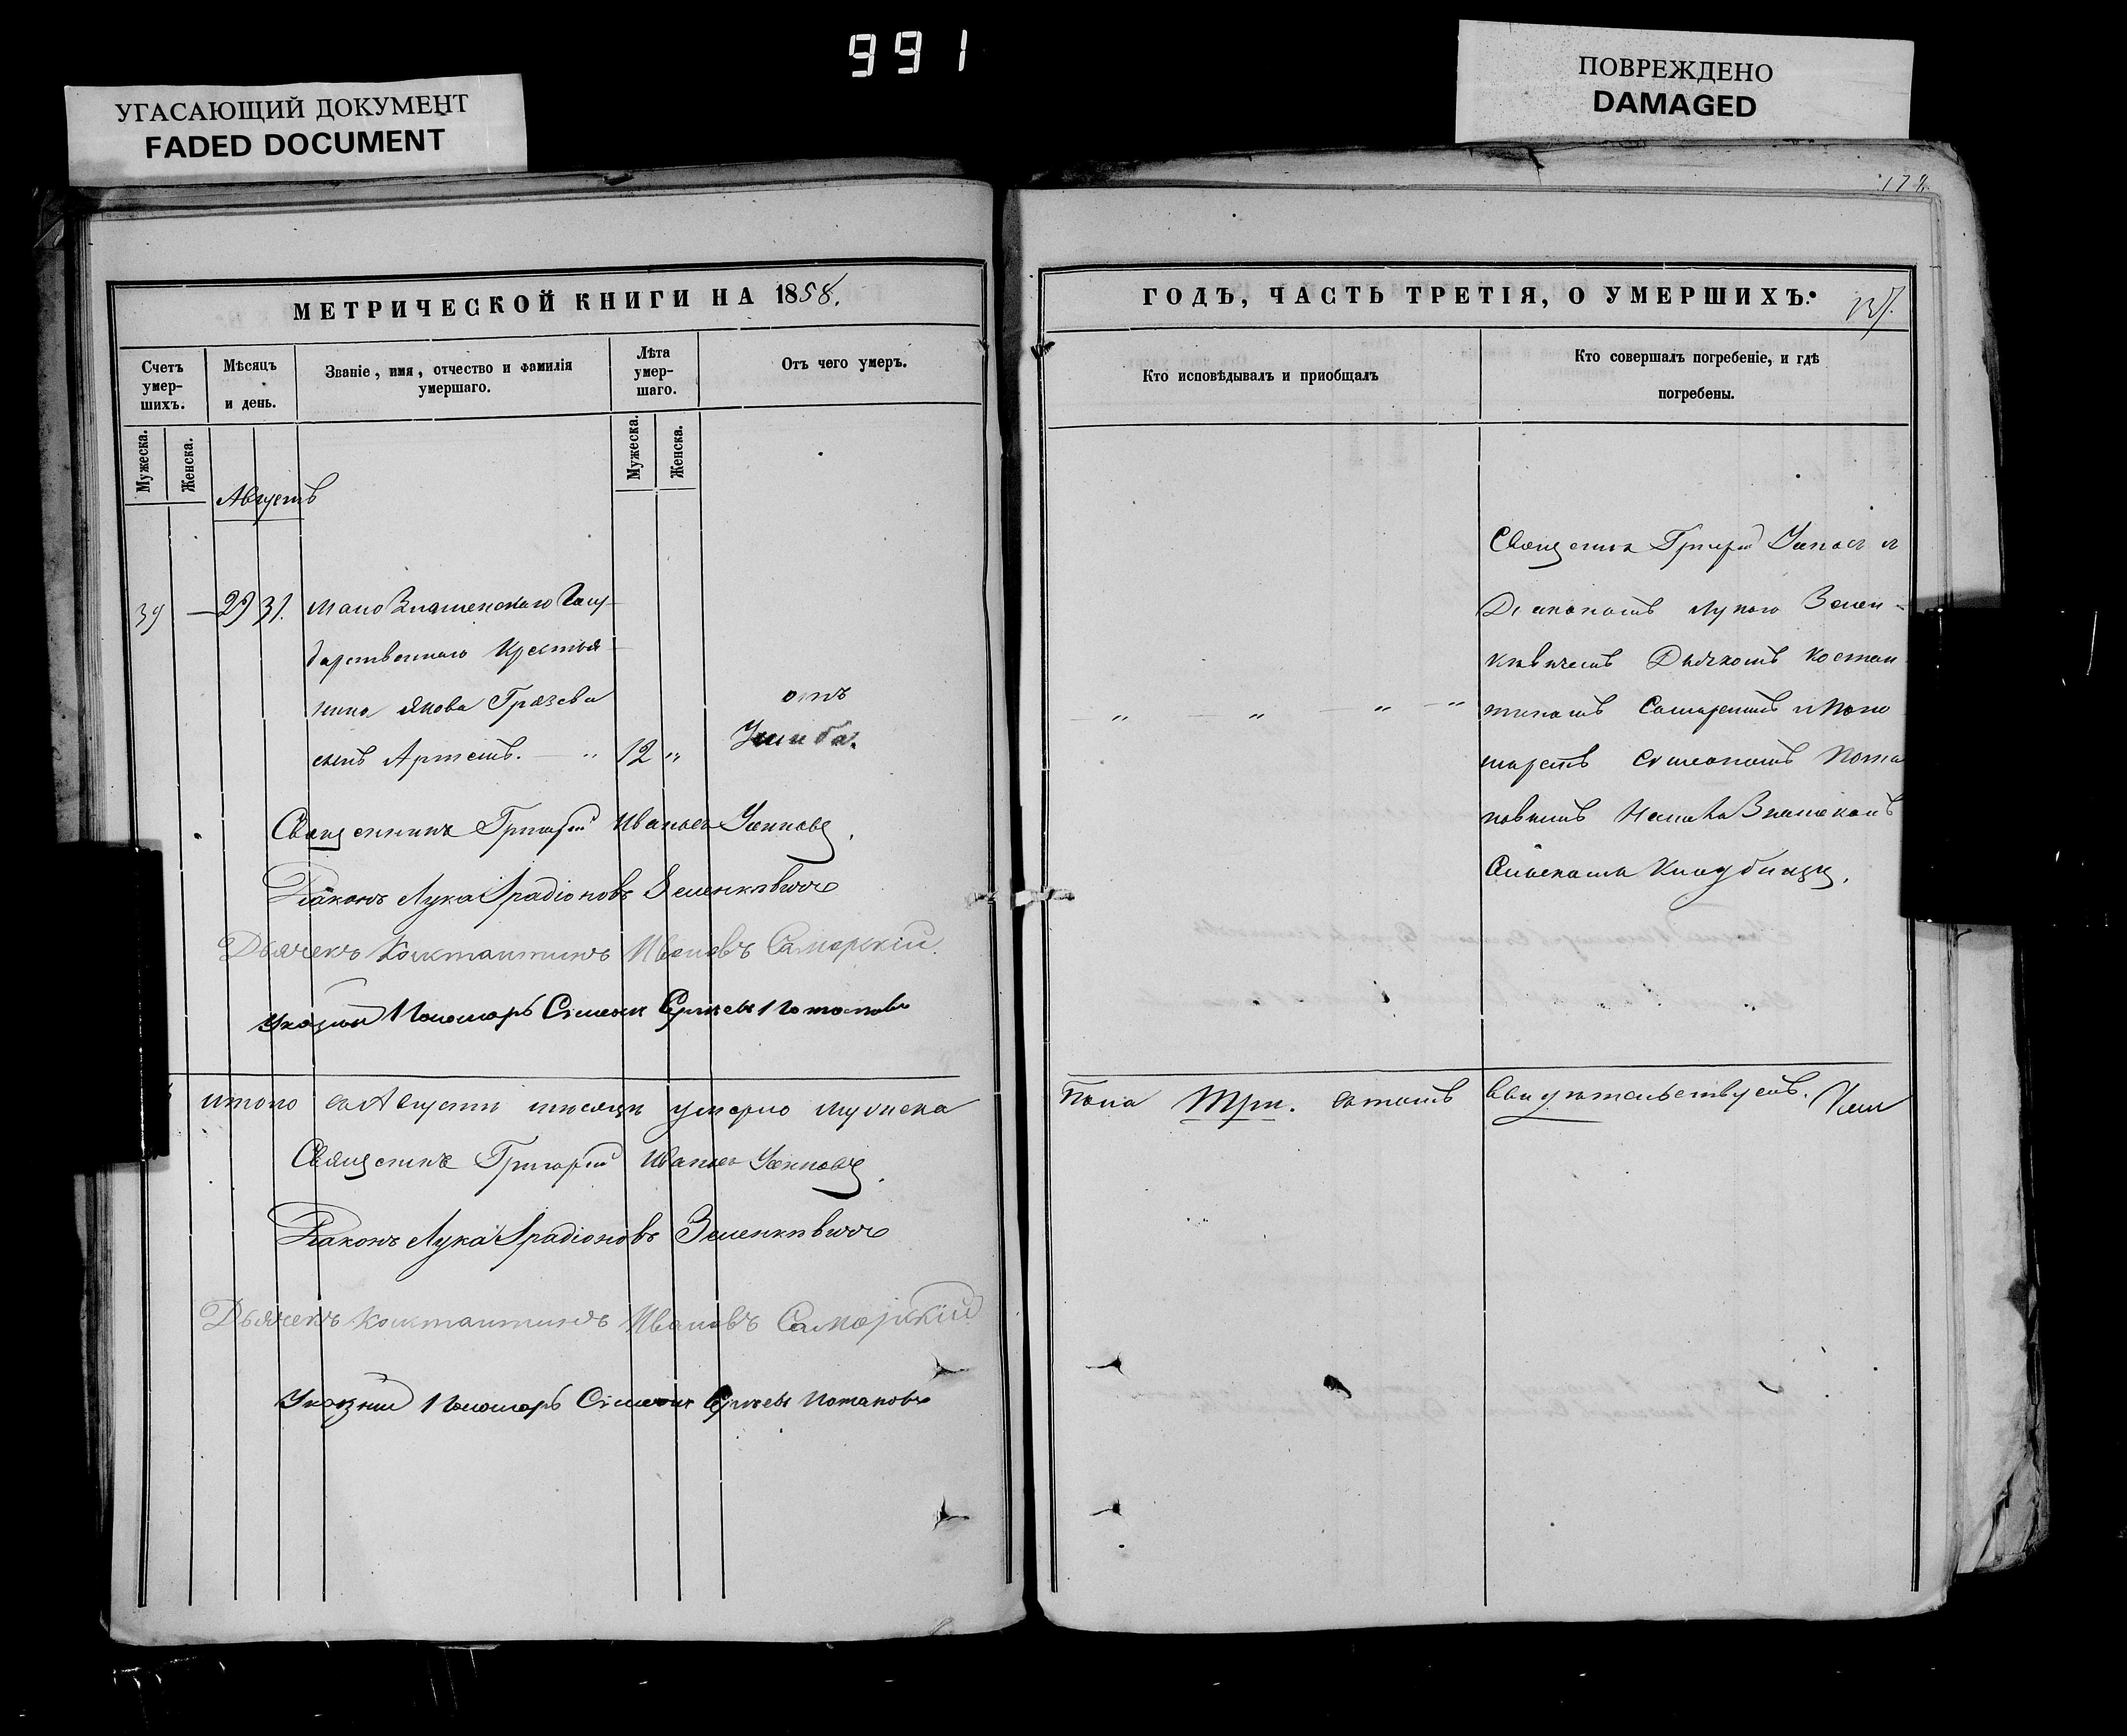 991
УГАСАЮЩИЙ ДОКУМЕНТ
FADED DOCUMENT
ПОВРЕЖДЕНО
DAMAGED
МЕТРИЧЕСКОЙ КНИГИ НА 1858.
Счетъ умер-
шихъ.
Мѣсяцъ
и день.
Званіе, имя, отчество и фамилія
умершаго.
Лѣта
умер-
шаго.
Отъ чего умеръ.
Мужеска.
Женска.
Мужеска.
Женска.
Августъ
39 — 29 31. Мало Знаменскаго Госу-
дарственнаго Крестья-
нина Якова Грязева
сынъ Артемъ. — " 12 "
отъ
Ушиба.
Священникъ Григорій Ивановъ
Діаконъ Лука Ірадіоновъ Зеленкѣвичъ
Дьячекъ Константинъ Ивановъ Самарскій.
Указный Пономарь Сімеонъ Сергіевъ Потаповъ
итого въ Августѣ мѣсяцѣ умерло мужеска
Священникъ Григорій Ивановъ
Діаконъ Лука Ірадіоновъ Зеленкѣвичъ
Дьячекъ Константинъ Ивановъ Самарскій
Указный Пономарь Сімеонъ Сергіевъ Потаповъ
ГОДЪ, ЧАСТЬ ТРЕТІЯ, О УМЕРШИХЪ.
Кто исповѣдывалъ и приобщалъ
Кто совершалъ погребеніе, и гдѣ
погребены.
" — " — " — "
Священникъ Григорій
Діакономъ Лукою Зелен-
кѣвичемъ Дьячкомъ Констан
тиномъ Самарскимъ и Поно
маремъ Сімеономъ Пота
повымъ На
Кладбищѣ.
пола Три. въ томъ свидѣтельствуемъ.